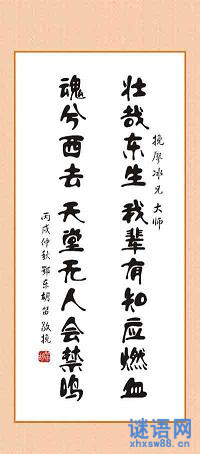 挽廖冰兄大师
壮哉东生我辈有知应燃血
魂兮西去天堂无人会禁鸣
丙戌仲秋鄂东胡笛敬挽
谜语网
xhxsw88.cn